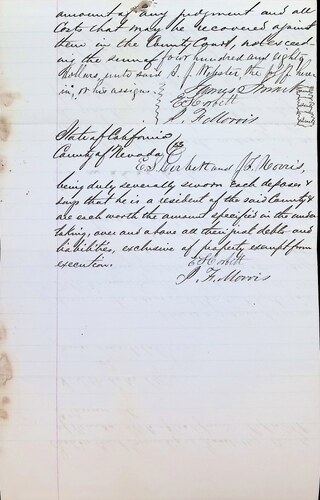 amount of any judgment and all
costs that may be recovered against
them in the County Court, not exceed-
ing the sum of four hundred and eighty
Dollars, unto said S. J. Webster, the plff here
in, or his assigns.
J. F. Morris
State of California
County of Nevada } ss
E. S. Corbett and J. F. Morris,
being duly severally sworn each deposes &
says that he is a resident of the said County &
are each worth the amount specified in the under
taking, over and above all their just debts and
liabilities, exclusive of property exempt from
execution.
J. F. Morris